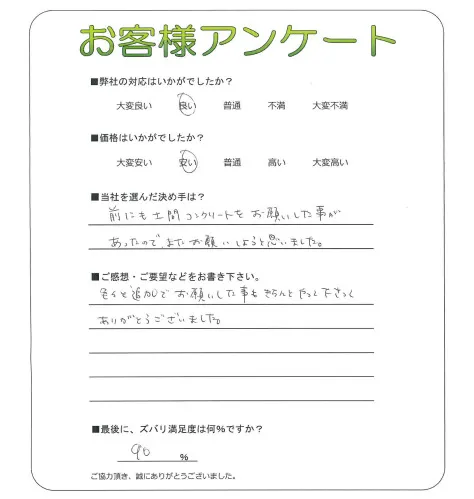 お客様アンケート
■弊社の対応はいかがでしたか?
大変良い 良い 普通 不満 大変不満
■価格はいかがでしたか?
大変安い 安い 普通 高い 大変高い
■当社を選んだ決め手は?
前にも土間コンクリートをお願いした事が
あったので、またお願いしようと思いました。
■ご感想・ご要望などをお書き下さい。
色々と追加でお願いした事もきちんとやって下さって
ありがとうございました。
■最後に、ズバリ満足度は何%ですか?
90 %
ご協力頂き、誠にありがとうございました。